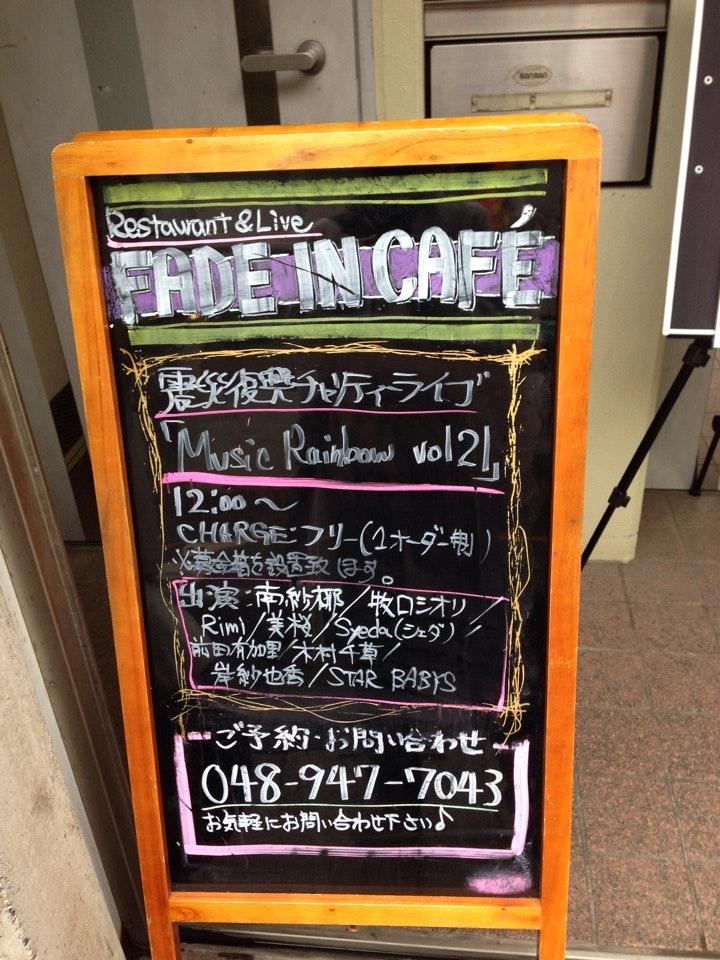 NANAAN
Restaurant & Live
FADE IN CAFÉ
震災復興チャリティーライブ
「Music Rainbow vol 21」
12:00〜
CHARGE:フリー(1オーダー制)
※募金箱を設置致します。
出演:南紗椰/牧口シオリ/
Rimi/美桜/Syeda(シェダ)/
前田有加里/木村千草/
岸紗也香/STAR BABYS
ご予約・お問い合わせ
048-947-7043
お気軽にお問い合わせ下さい♪